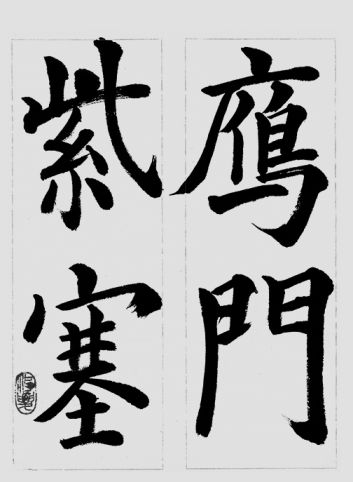 鴈門
紫塞